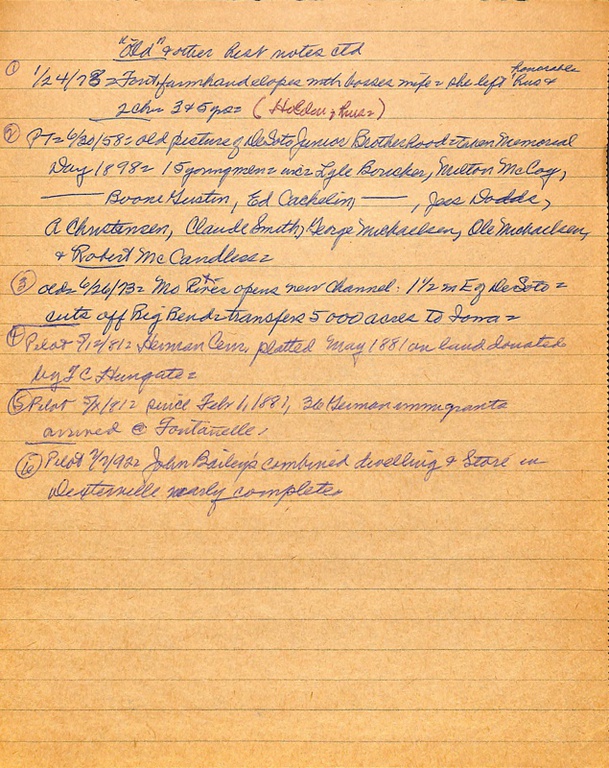 "Old" & other Hist notes ctd
① 1/24/78 = Font farmhand elopes with bosses wife = she left honorable hus &
2 ch = 3 & 5 yrs = (Holden, hus =)
② PT = 6/20/58 = old picture of DeSoto Junior Brotherhood = taken Memorial
Day 1898 = 15 young men = inc = Lyle Boucher, Milton McCoy,
—— Boone Gustin, Ed Cachelin, ——, Jess Dodds,
A Christensen, Claude Smith, George Michaelsen, Ole Michaelsen,
& Robert McCandless =
③ old = 6/26/73 = Mo River opens new channel. 1 1/2 m E of DeSoto =
cuts off Big Bend = transfers 5000 acres to Iowa =
④ Pilot 5/12/81 = German Cem. platted May 1881 on land donated
by F C Hungate =
⑤ Pilot 5/ /81 = since Feb 1, 1881, 36 German immigrants
arrived @ Fontanelle.
⑥ Pilot 7/7/92 = John Bailey's combined dwelling & store in
nearly complete =